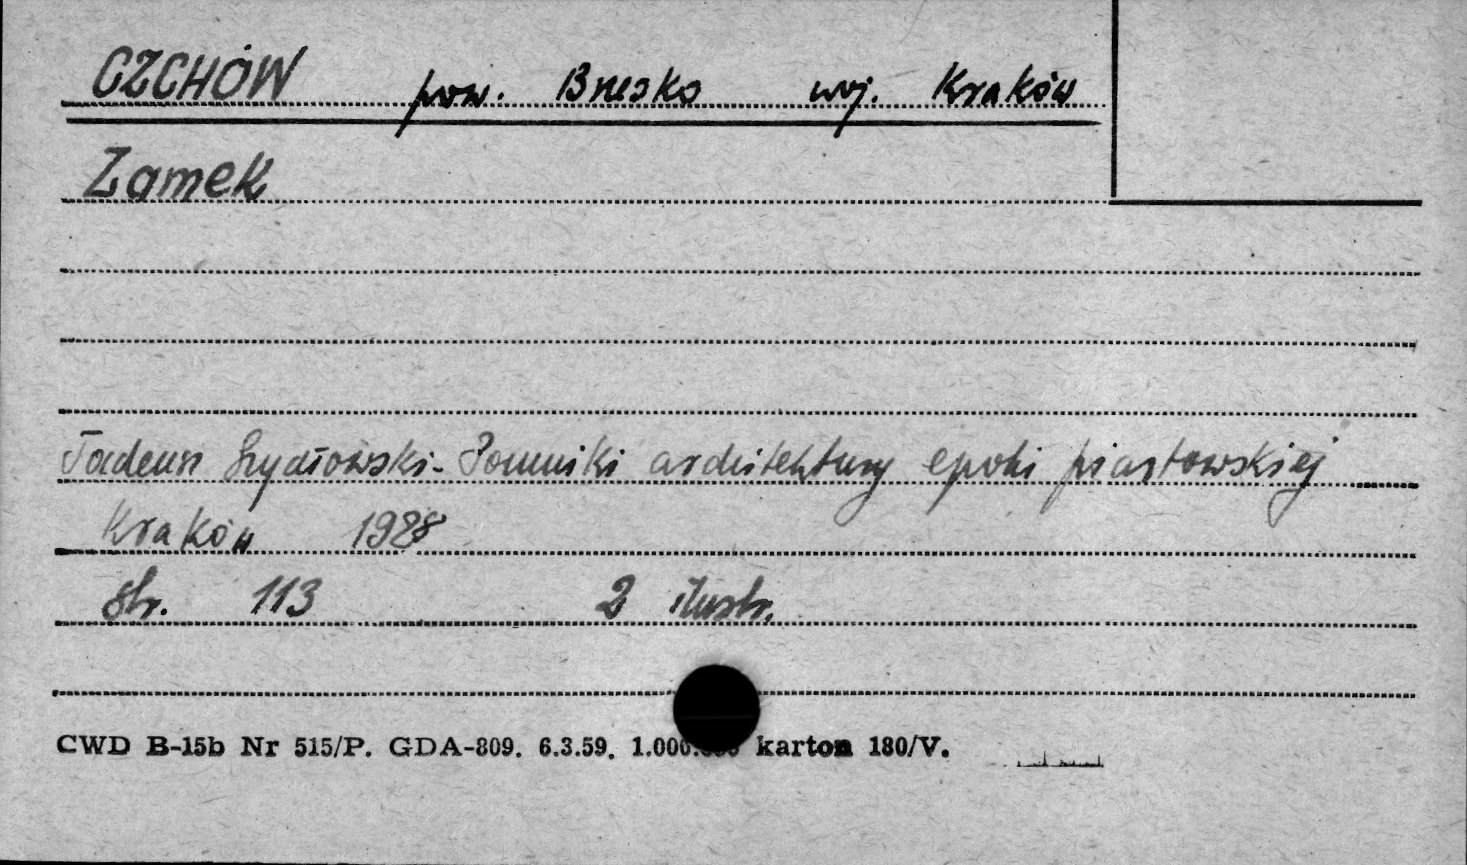 CZCHÓW pow. Brzesko woj. Kraków
Zamek
Tadeusz Szydłowski - Pomniki architektury epoki piastowskiej
Kraków 1928
str. 113 2 ilustr.
CWD B-15b Nr 515/P. GDA-809. 6.3.59. karton 180/V.